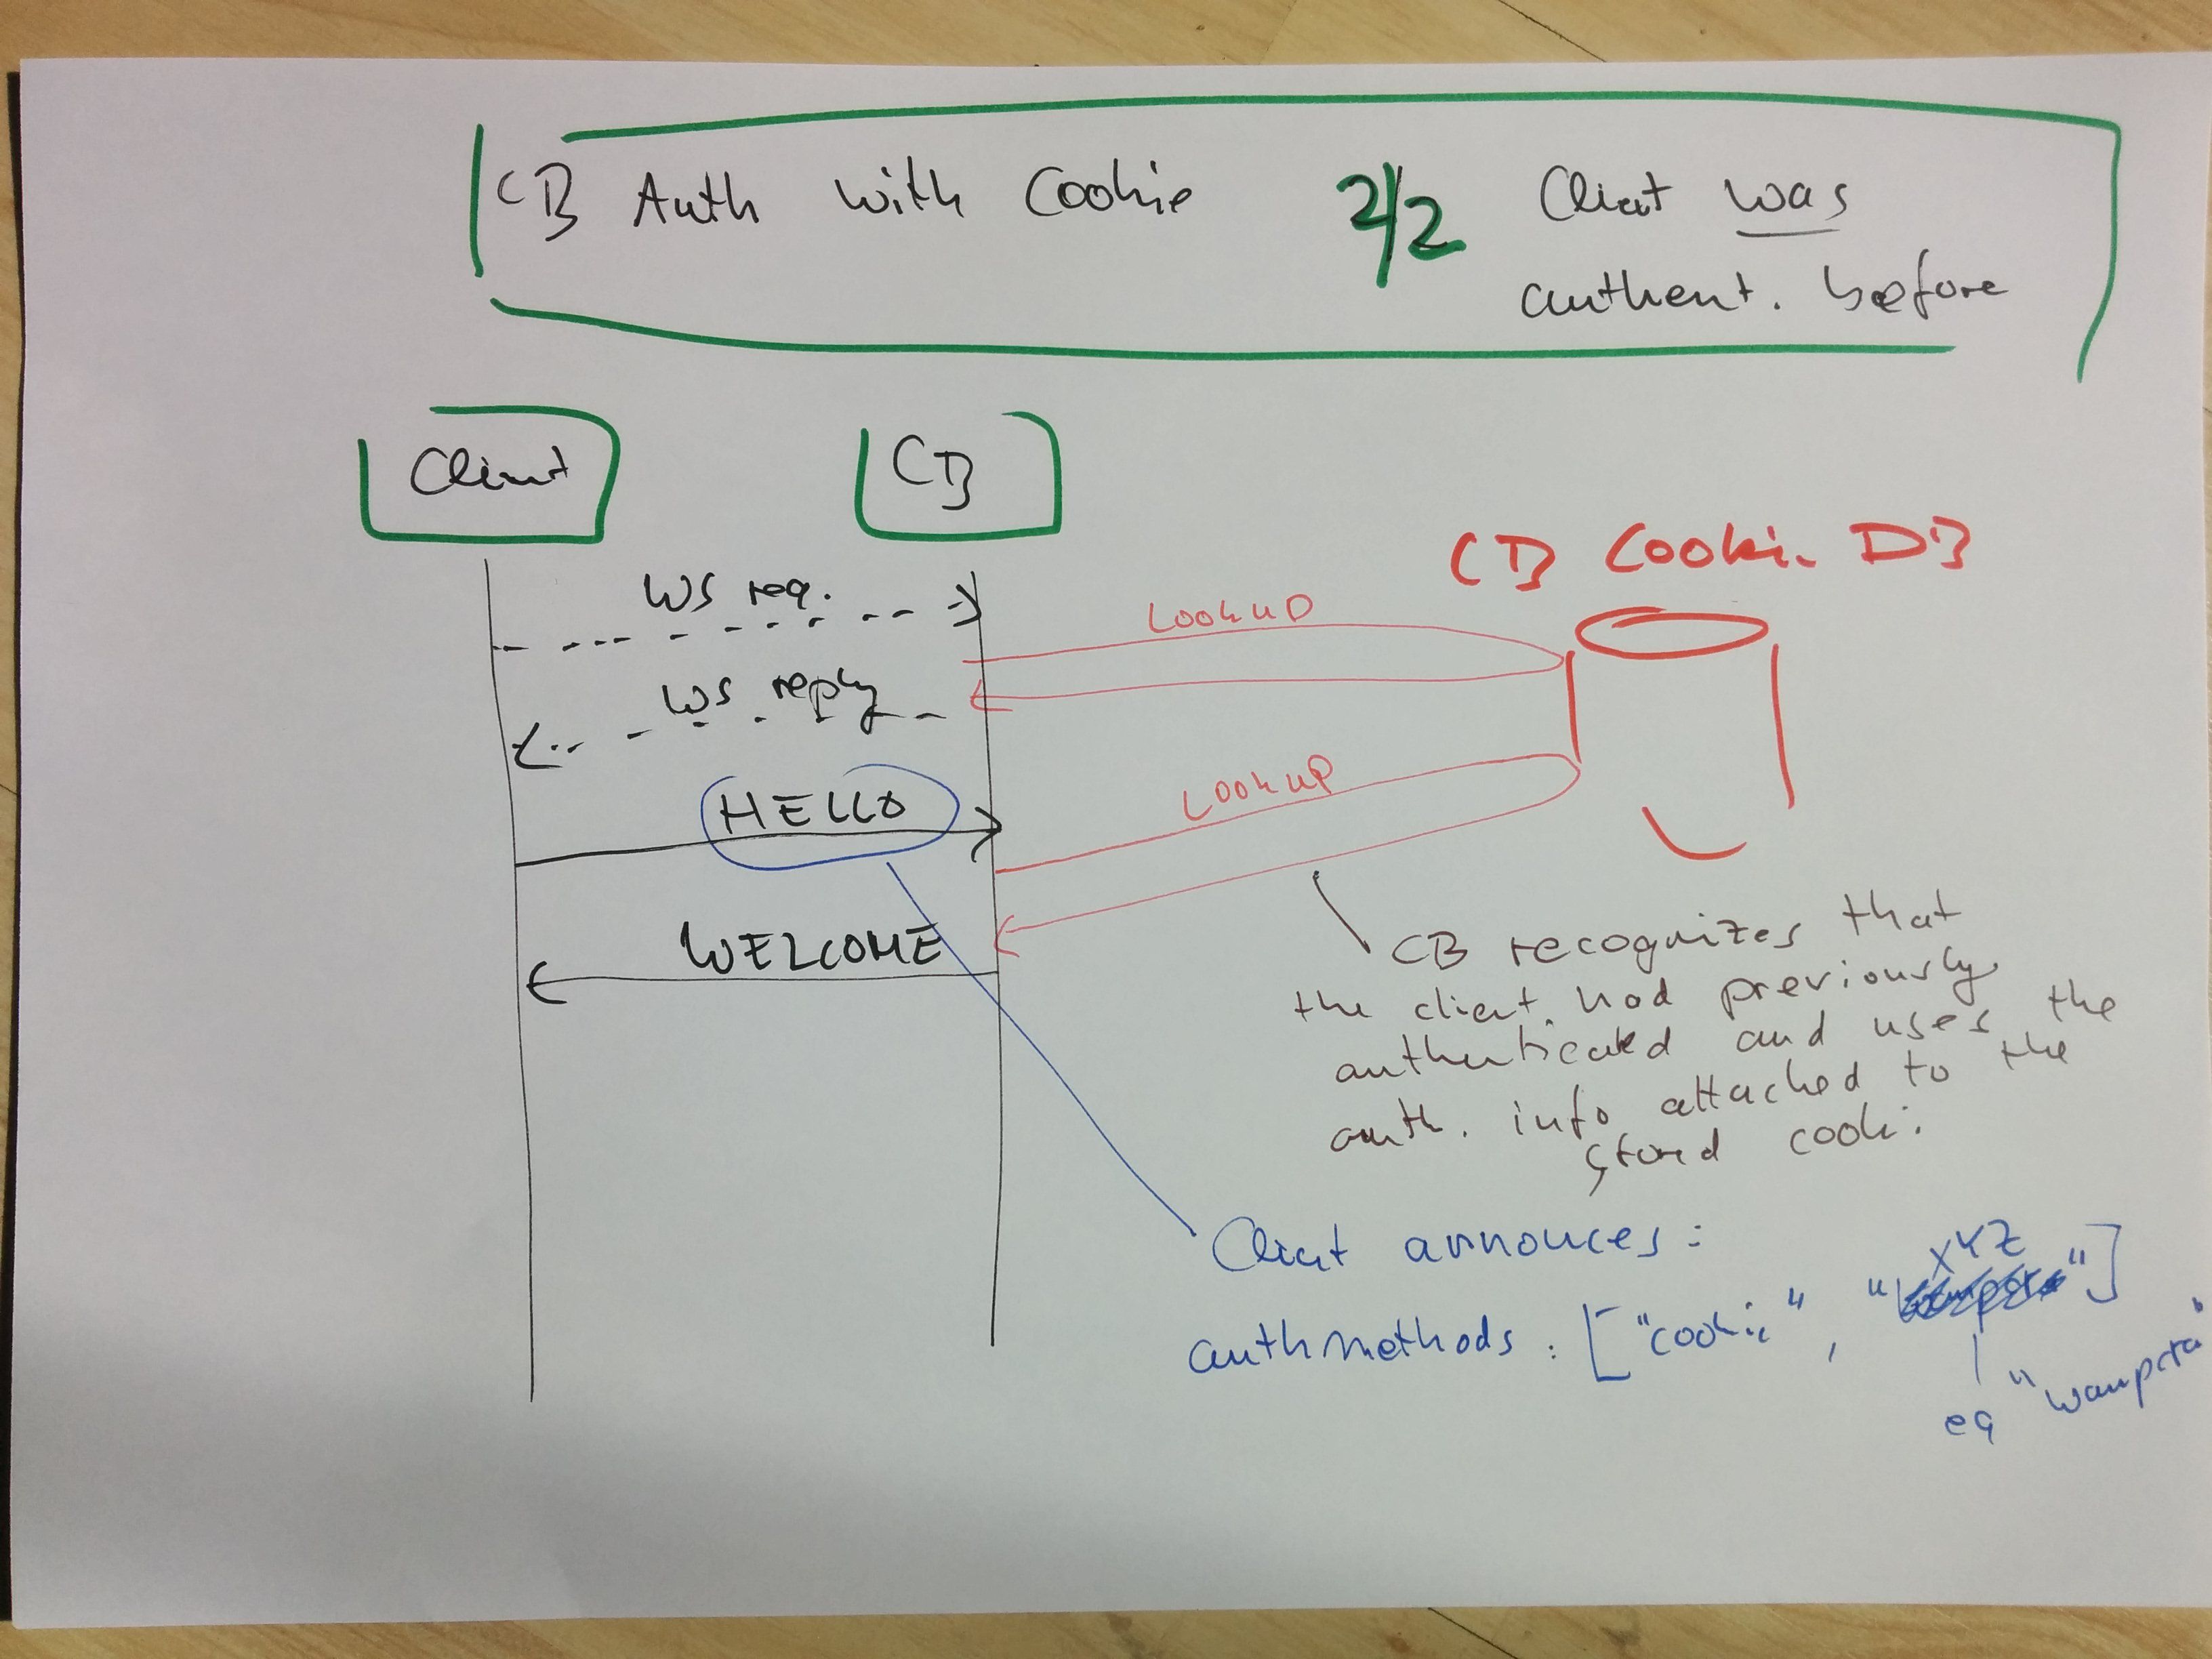 CB Auth with Cookie 2/2 Client was
authent. before
Client
CB
CB Cookie DB
WS req.
LOOKUP
WS reply
HELLO
LOOKUP
WELCOME
CB recognizes that
the client had previously
authenticated and uses the
auth. info attached to the
stored cookie
Client annouces:
XYZ
authmethods: ["cookie", " "]
eg "wampcra"